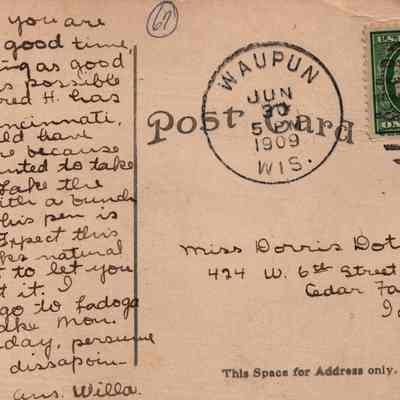 you are
good time,
ing as good
s possible
red H. has
incinnati.
ld have
re because
nted to take
Take the
ith a bunch
his pen is
Expect this
ks natural
t to let you
t it. I
go to Ladoga
ake Mon.
day, persume
dissapoin-
ans. Willa.
67
WAUPUN
JUN
30
5 PM
1909
WIS.
Post Card
U.S.
ON
Miss Dorris Dot
424 W. 6th Street
Cedar Fa
Io
This Space for Address only.